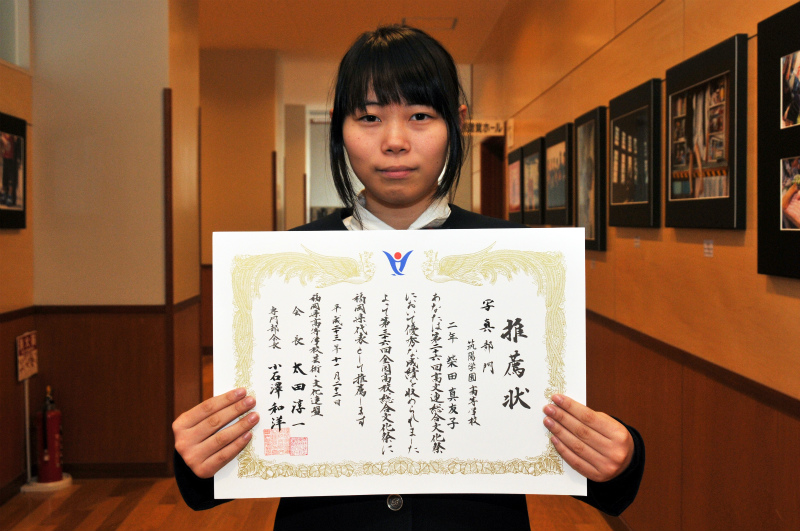 推薦状
写真部門
筑陽学園高等学校
二年 柴田真友子
あなたは第二十六回高文連総合文化祭
において優秀な成績を収められました
よって第三十六回全国高校総合文化祭に
福岡県代表として推薦します
平成二十三年十一月二十三日
福岡県高等学校芸術・文化連盟
会長 太田淳一
専門部会長 小石澤和洋